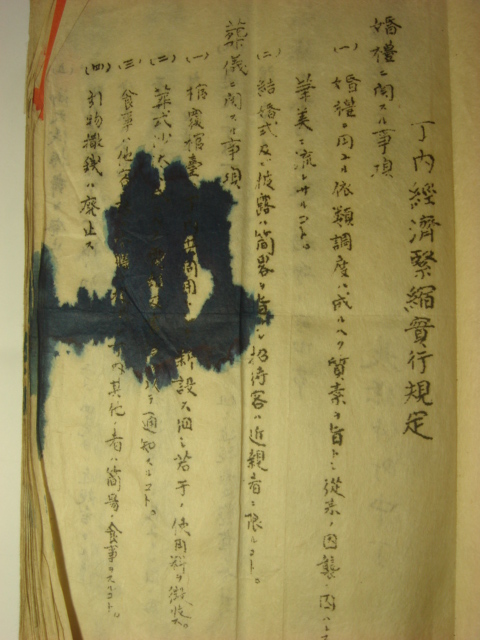 丁内經濟緊縮實行規定
婚禮ニ関スル事項
(一) 婚禮ニ用ユル依類調度ハ成ルヘク質素ヲ旨トシ從来ノ因襲ニ因ハレ
華美ニ流レサルコト。
(二) 結婚式及ヒ披露ハ簡畧ヲ旨 招待客ハ近親者ニ限ルコト。
葬儀ニ関スル事項
(一) 棺覆棺臺 新設 若干ノ使用料ヲ徴收
(二) 葬式 通知スルコト。
(三) 食事ハ 其他ノ者ハ簡易ノ食事ヲスルコト。
(四) 引物撒銭ハ廃止ス